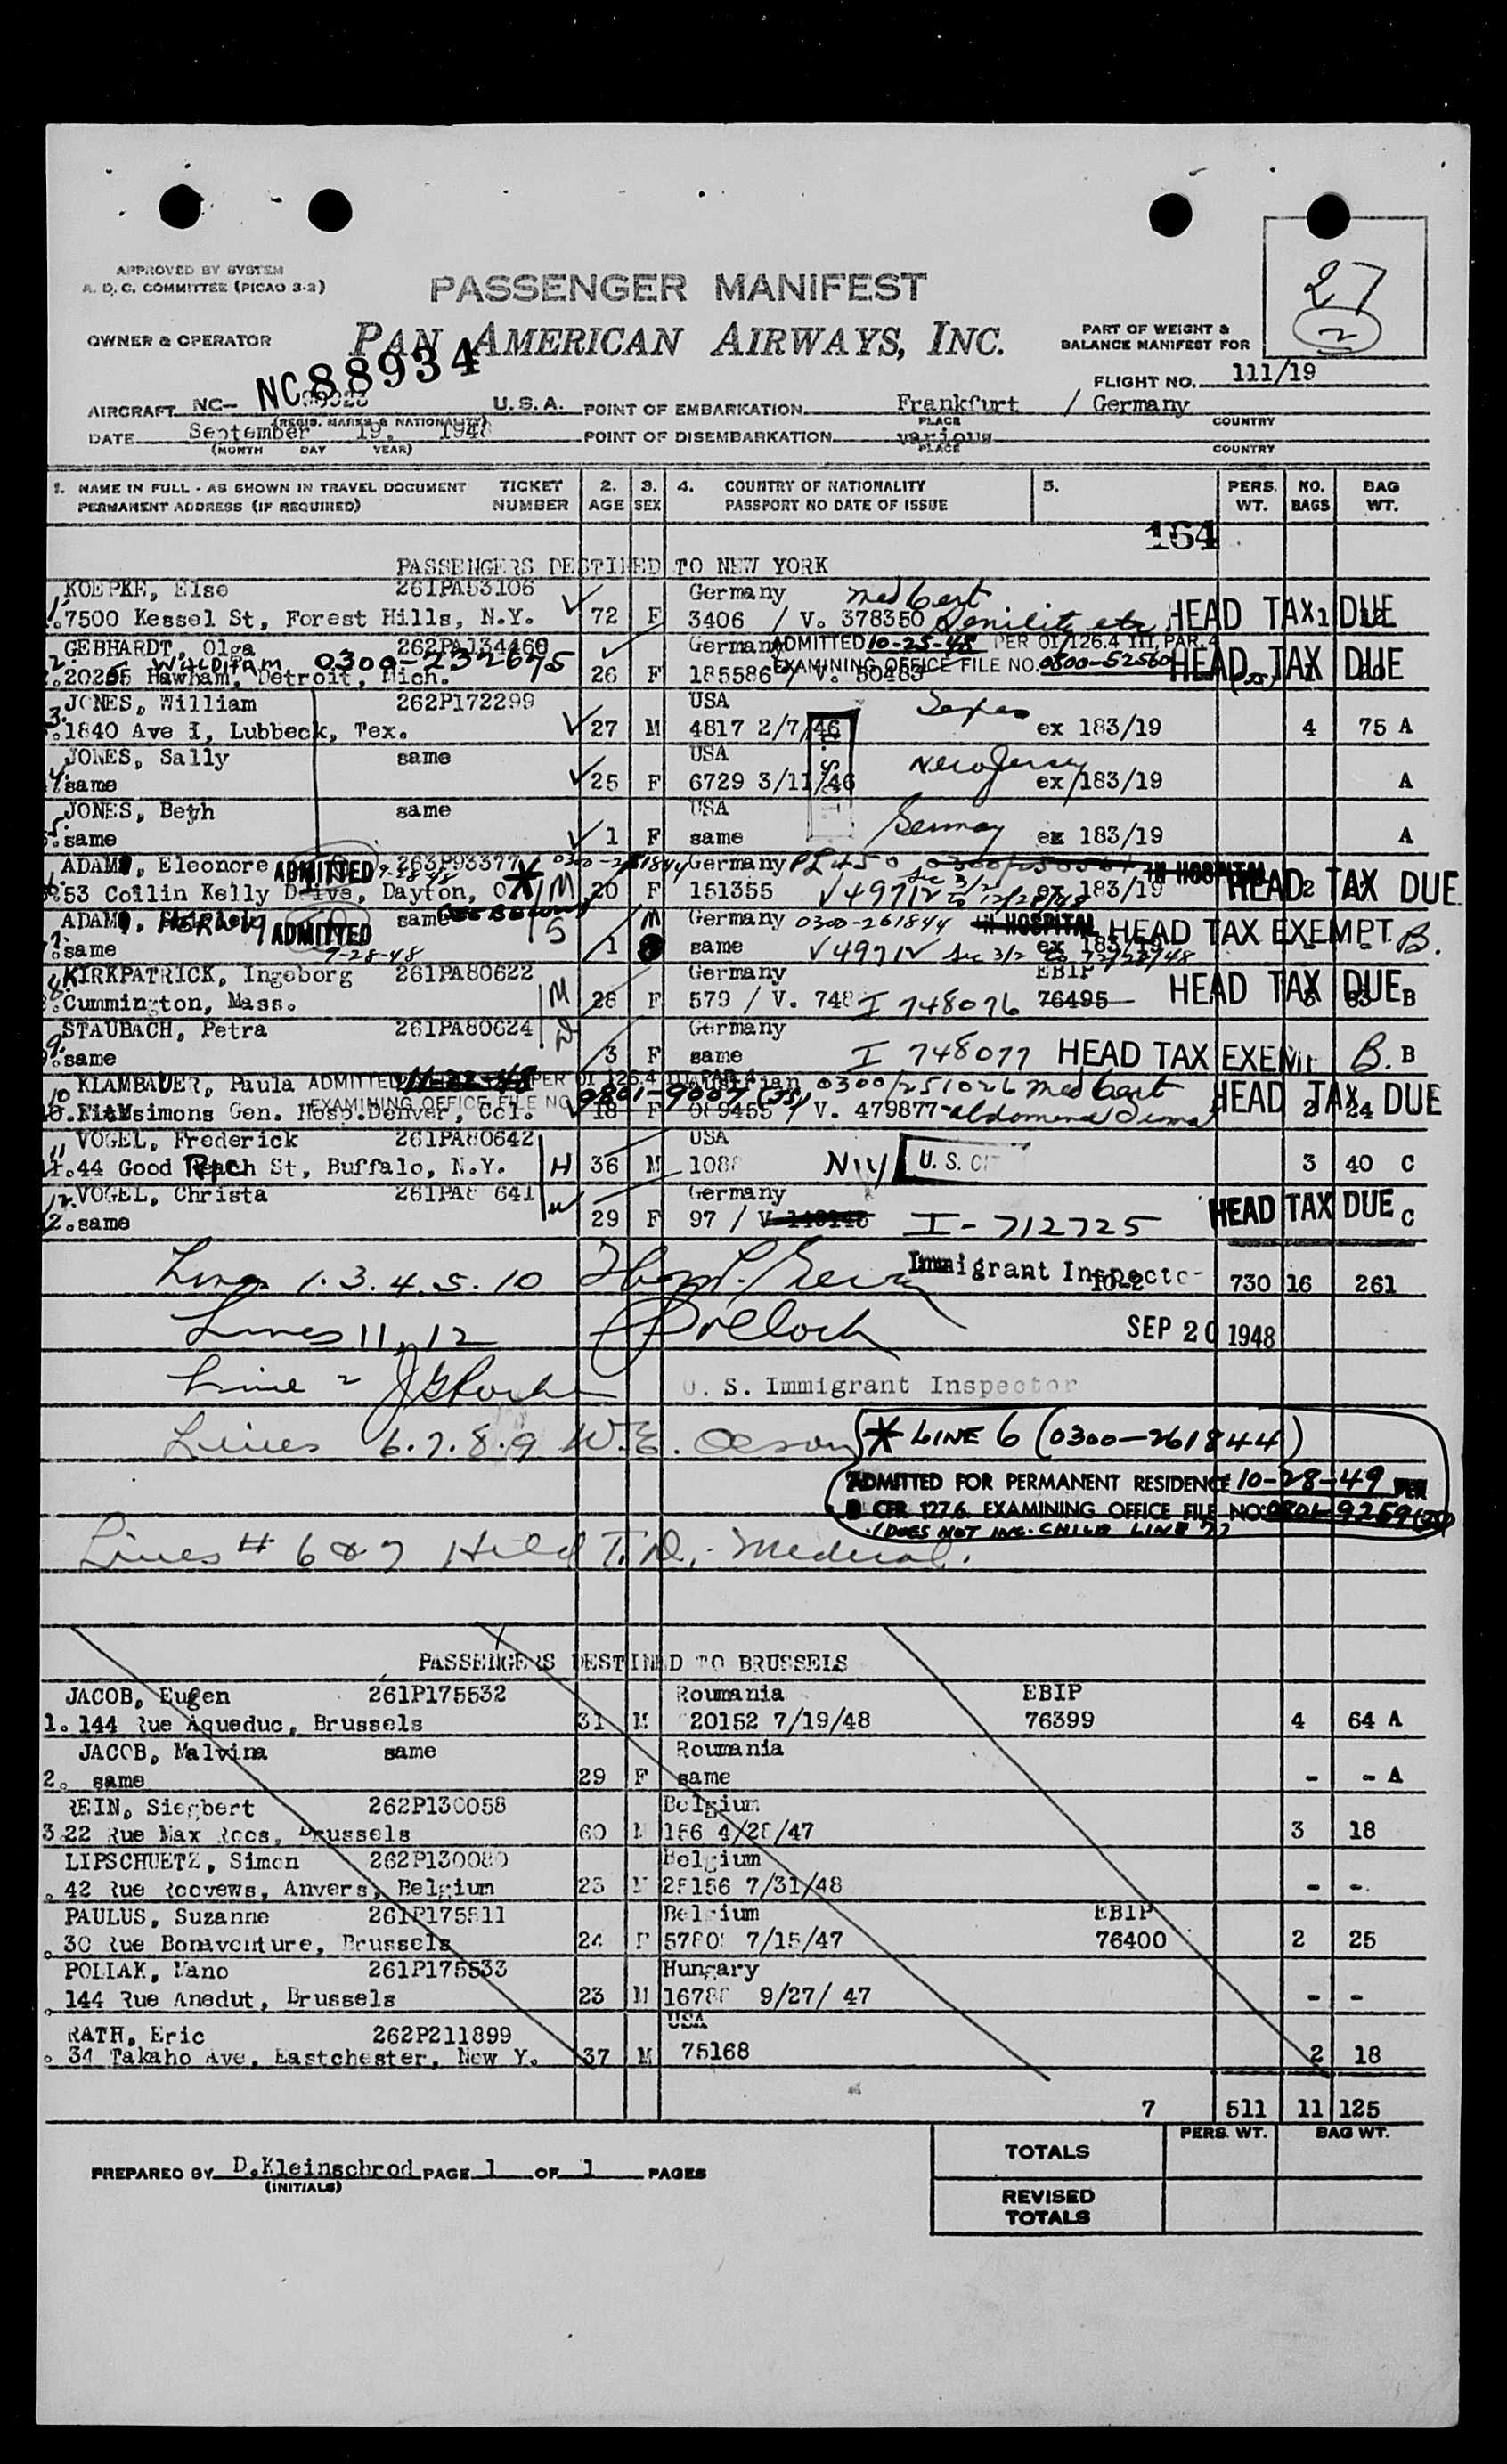 27
2
APPROVED BY SYSTEM
A. D. C. COMMITTEE (PICAO 3-2)
PASSENGER MANIFEST
OWNER & OPERATOR
PAN AMERICAN AIRWAYS, INC.
PART OF WEIGHT &
BALANCE MANIFEST FOR
FLIGHT NO. 111/19
NC88934
AIRCRAFT NC- U.S.A. POINT OF EMBARKATION Frankfurt / Germany
(REGIS. MARKS & NATIONALITY) PLACE COUNTRY
DATE September 19, 1948 POINT OF DISEMBARKATION various
(MONTH DAY YEAR) PLACE COUNTRY
1. NAME IN FULL - AS SHOWN IN TRAVEL DOCUMENT TICKET 2. 3. 4. COUNTRY OF NATIONALITY 5. PERS. NO. BAG
PERMANENT ADDRESS (IF REQUIRED) NUMBER AGE SEX PASSPORT NO DATE OF ISSUE WT. BAGS WT.
164
PASSENGERS DESTINED TO NEW YORK
KOEPKE, Else 261PA53106 Germany Med Cert
1. 7500 Kessel St, Forest Hills, N.Y. 72 F 3406 / V. 378350 Senility etc HEAD TAX DUE
GEBHARDT, Olga 262PA134460 Germany ADMITTED 10-25-48 PER OI/126.4 III, PAR. 4
2. WALDHAM 0300-232675 EXAMINING OFFICE FILE NO. 0800-52560 HEAD TAX DUE
Detroit, Mich. 26 F 185586 / V. 50483
JONES, William 262P172299 USA Texas
3. 1840 Ave I, Lubbeck, Tex. 27 M 4817 2/7/46 ex 183/19 4 75 A
JONES, Sally same USA New Jersey
4. same 25 F 6729 3/11/46 ex 183/19 A
JONES, Beth same USA Germany
5. same 1 F same ex 183/19 A
ADAMS, Eleonore ADMITTED 9-28-48 263P93377 0300-261844 Germany PL450 IN HOSPITAL
6. 53 Collin Kelly Drive, Dayton, O * M 20 F 151355 V497IV Sec 3/2 to 12/28/48 ex 183/19 HEAD TAX DUE
ADAMS, ADMITTED same M Germany 0300-261844 IN HOSPITAL HEAD TAX EXEMPT B.
7. same 9-28-48 S 1 same V497IV Sec 3/2 to 12/28/48 ex 183/19
KIRKPATRICK, Ingeborg 261PA80622 Germany EBIP
8. Cummington, Mass. M 28 F 579 / V. 748 I 748076 76495 HEAD TAX DUE B
STAUBACH, Petra 261PA80624 Germany
9. same D 3 F same I 748077 HEAD TAX EXEMPT B. B
10 KLAMBAUER, Paula ADMITTED 11-22-48 PER OI 126.4 III PAR 4 0300/251026 Med Cert
EXAMINING OFFICE FILE NO. 0801-9007 (JS)
Fitzsimons Gen. Hosp. Denver, Col. 18 F / V. 479877 HEAD TAX DUE
11 VOGEL, Frederick 261PA80642 USA
44 Good St, Buffalo, N.Y. H 36 M 108 NY U. S. CIT 3 40 C
12 VOGEL, Christa 261PA8 641 Germany
same W 29 F 97 / I-712725 HEAD TAX DUE C
Lines 1.3.4.5.10 Immigrant Inspector 10-2 730 16 261
Lines 11, 12 Pollock SEP 20 1948
Line 2 U. S. Immigrant Inspector
Lines 6.7.8.9 W.E. Olson * LINE 6 (0300-261844)
ADMITTED FOR PERMANENT RESIDENCE 10-28-49 PER
8 CFR 127.6. EXAMINING OFFICE FILE NO. 0801-9259 (JS)
(DOES NOT INC. CHILD LINE 7)
Lines # 6 & 7 Held T.D. Medical.
PASSENGERS DESTINED TO BRUSSELS
JACOB, Eugen 261P175532 Roumania EBIP
1. 144 Rue Aqueduc, Brussels 31 M 20152 7/19/48 76399 4 64 A
JACOB, Malvina same Roumania
2. same 29 F same - - A
REIN, Siegbert 262P130058 Belgium
3. 22 Rue Max Roos, Brussels 60 M 156 4/28/47 3 18
LIPSCHUETZ, Simon 262P130080 Belgium
. 42 Rue Roovews, Anvers, Belgium 23 M 25156 7/31/48 - -.
PAULUS, Suzanne 261P175511 Belgium EBIP
. 30 Rue Bonaventure, Brussels 24 F 5780 7/15/47 76400 2 25
POLIAK, Mano 261P175533 Hungary
. 144 Rue Anedut, Brussels 23 M 1678 9/27/ 47 - -
RATH, Eric 262P211899 USA
. 34 Takaho Ave, Eastchester, New Y. 37 M 75168 2 18
7 511 11 125
PERS. WT. BAG WT.
TOTALS
PREPARED BY D.Kleinschrod PAGE 1 OF 1 PAGES
(INITIALS)
REVISED
TOTALS